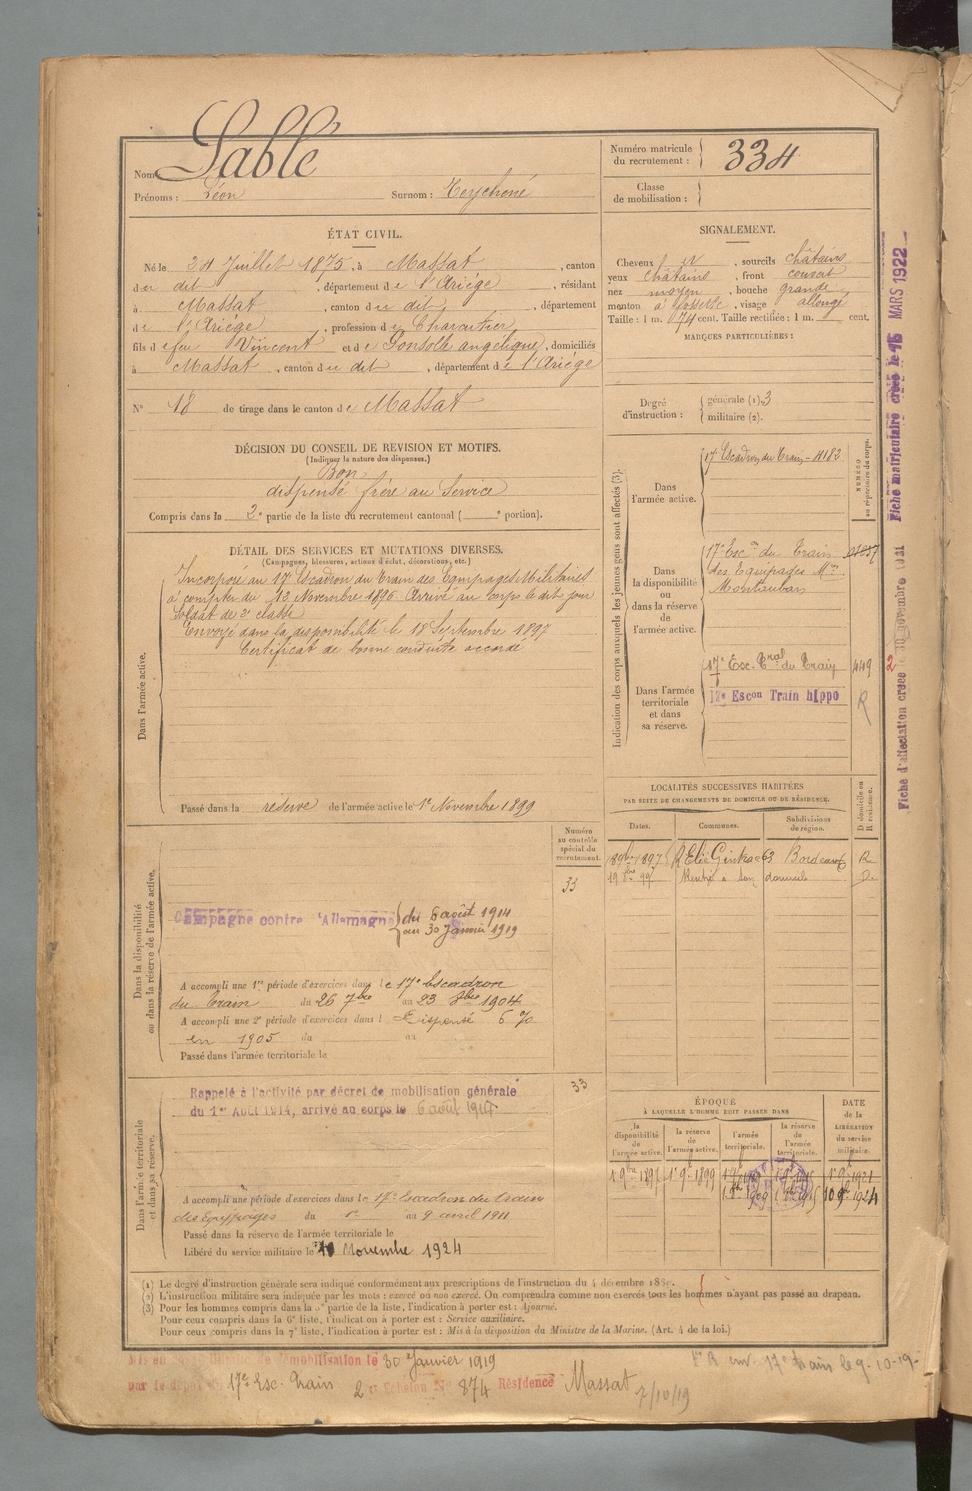 Nom : Sablé
Prénoms : Léon Surnom : Teychoné
ÉTAT CIVIL.
Né le 24 Juillet 1875, à Massat, canton
du dit, département de l'Ariège, résidant
à Massat, canton du dit, département
de l'Ariège, profession de Charcutier
fils de feu Vincent et de Gonsolle angélique, domiciliés
à Massat, canton du dit, département de l'Ariège
N° 18 de tirage dans le canton de Massat
DÉCISION DU CONSEIL DE REVISION ET MOTIFS.
(Indiquer la nature des dispenses.)
Bon
dispensé frère au Service
Compris dans la 2e partie de la liste du recrutement cantonal ( e portion).
DÉTAIL DES SERVICES ET MUTATIONS DIVERSES.
(Campagnes, blessures, actions d'éclat, décorations, etc.)
Dans l'armée active.
Incorporé au 17e Escadron du Train des Equipages Militaires
à compter du 12 Novembre 1896. Arrivé au corps le dit jour
Soldat de 2e classe
Envoyé dans la disponibilité le 18 Septembre 1897
Certificat de bonne conduite accordé
Passé dans la réserve de l'armée active le 1er Novembre 1899
Dans la disponibilité
ou dans la réserve de l'armée active.
Numéro
au contrôle
spécial du
recrutement.
33
Campagne contre l'Allemagne
du 6 août 1914
au 30 Janvier 1919
A accompli une 1re période d'exercices dans le 17e Escadron
du Train du 26 7bre au 23 8bre 1904
A accompli une 2e période d'exercices dans l Dispensé 6 %
en 1905 du au
Passé dans l'armée territoriale le
Dans l'armée territoriale
et dans sa réserve.
33
Rappelé à l'activité par décret de mobilisation générale
du 1er AOUT 1914, arrivé au corps le 6 août 1914
A accompli une période d'exercices dans le 17e Escadron du train
des Equipages du 1er au 9 avril 1911
Passé dans la réserve de l'armée territoriale le
Libéré du service militaire le 10 Novembre 1924
Numéro matricule
du recrutement : 334
Classe
de mobilisation :
SIGNALEMENT.
Cheveux , sourcils châtains
yeux châtains, front couvert
nez moyen, bouche grande
menton à fossette, visage allongé
Taille : 1 m. 74 cent. Taille rectifiée : 1 m. cent.
MARQUES PARTICULIÈRES :
Degré
d'instruction :
générale (1). 3
militaire (2).
Indication des corps auxquels les jeunes gens sont affectés (3).
NUMÉRO
au répertoire du corps.
Dans
l'armée active.
17e Escadron du Train - 4182
Dans
la disponibilité
ou dans la réserve
de
l'armée active.
17e Escon du Train
des Equipages Mres
Montauban
Dans l'armée
territoriale
et dans
sa réserve.
17e Esc. Tral du Train 449
17e Escon Train hippo R
LOCALITÉS SUCCESSIVES HABITÉES
PAR SUITE DE CHANGEMENTS DE DOMICILE OU DE RÉSIDENCE.
D domicile ou
R résidence.
Dates. Communes. Subdivisions
de région.
63 Bordeaux R
Rentré à son domicile D
ÉPOQUE
À LAQUELLE L'HOMME DOIT PASSER DANS
DATE
de la
LIBÉRATION
du service
militaire.
la
disponibilité
de
l'armée active.
la réserve
de
l'armée active.
l'armée
territoriale.
la réserve
de
l'armée
territoriale.
1 9bre 1896 1er 9e 1899 1er 9e 1921
10 9bre 1924
(1) Le degré d'instruction générale sera indiqué conformément aux prescriptions de l'instruction du 4 décembre 1889.
(2) L'instruction militaire sera indiquée par les mots : exercé ou non exercé. On comprendra comme non exercés tous les hommes n'ayant pas passé au drapeau.
(3) Pour les hommes compris dans la 5e partie de la liste, l'indication à porter est : Ajourné.
Pour ceux compris dans la 6e liste, l'indication à porter est : Service auxiliaire.
Pour ceux compris dans la 7e liste, l'indication à porter est : Mis à la disposition du Ministre de la Marine. (Art. 4 de la loi.)
Mis en congé illimité de démobilisation le 30 Janvier 1919
par le dépôt du 17e Esc. Train 2e Echelon N° 874 Résidence Massat
7/10/19
17e train le 9-10-19
Fiche d'affectation créée le 30 novembre 1921
Fiche matriculaire créée le 15 MARS 1922
2